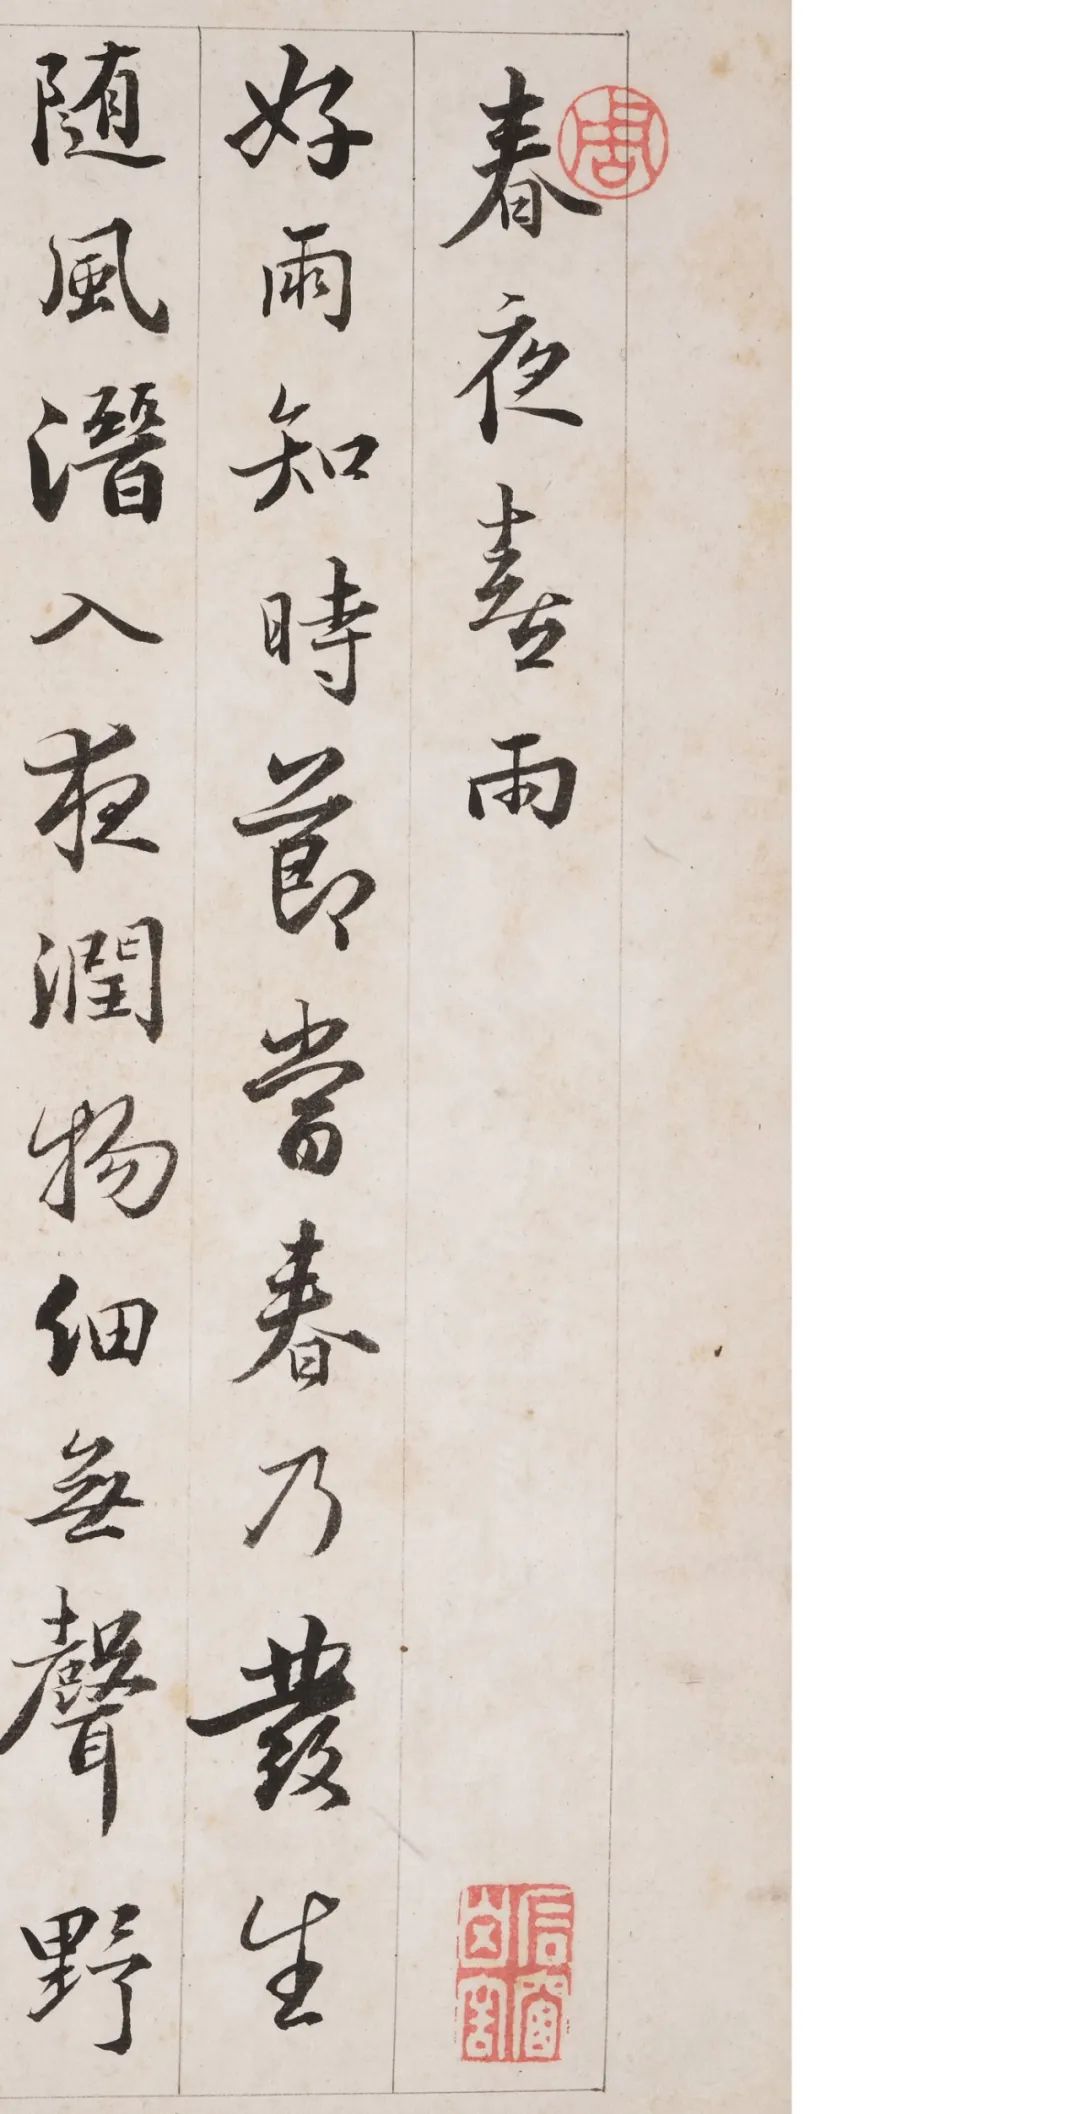 春夜喜雨
好雨知時節當春乃發生
随風潛入夜潤物細無聲野
周